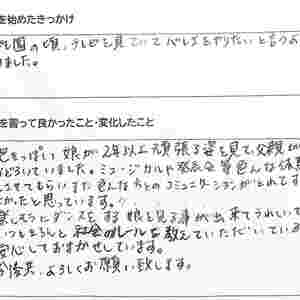 を始めたきっかけ
園の頃、テレビを見ていてバレエをやりたいと言うよ
ました。
を習って良かったこと・変化したこと
っぽい娘が2年以上頑張る姿を見て、父親が
どろいていました。ミュージカルや発表会等色んな体験
させてもらい また色んな方とのコミュニケーションがとれてす
かったと思っています。
楽しそうにダンスをする娘を見る事が出来てうれしいで
もちろんと社会のルールを教えていただいている
安心しておまかせしています。
後共、よろしくお願い致します。